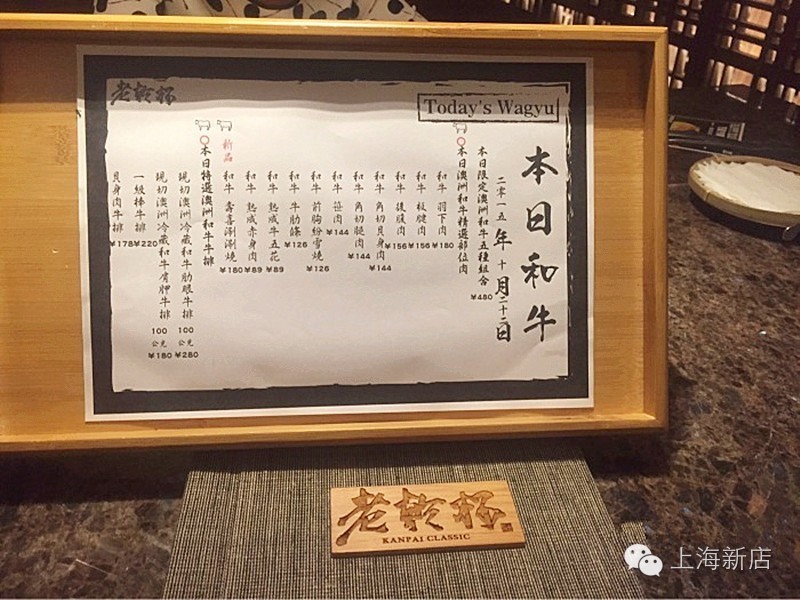 老乾杯
Today's Wagyu
本日和牛
二零一五年十月二十二日
本日限定澳洲和牛五種組合 ¥480
本日澳洲和牛精選部位肉
和牛 羽下肉 ¥180
和牛 板腱肉 ¥156
和牛 後腹肉 ¥156
和牛 角切貝身肉 ¥144
和牛 角切腿肉 ¥144
和牛 笹肉 ¥144
和牛 前胸紛雪燒 ¥126
和牛 牛肋條 ¥126
和牛 熟成牛五花 ¥89
和牛 熟成赤身肉 ¥89
新品 和牛 壽喜涮涮燒 ¥180
本日特選澳洲和牛牛排
現切澳洲冷藏和牛肋眼牛排 100公克 ¥280
現切澳洲冷藏和牛肩胛牛排 100公克 ¥180
一級棒牛排 ¥220
貝身肉牛排 ¥178
老乾杯
KANPAI CLASSIC
上海新店